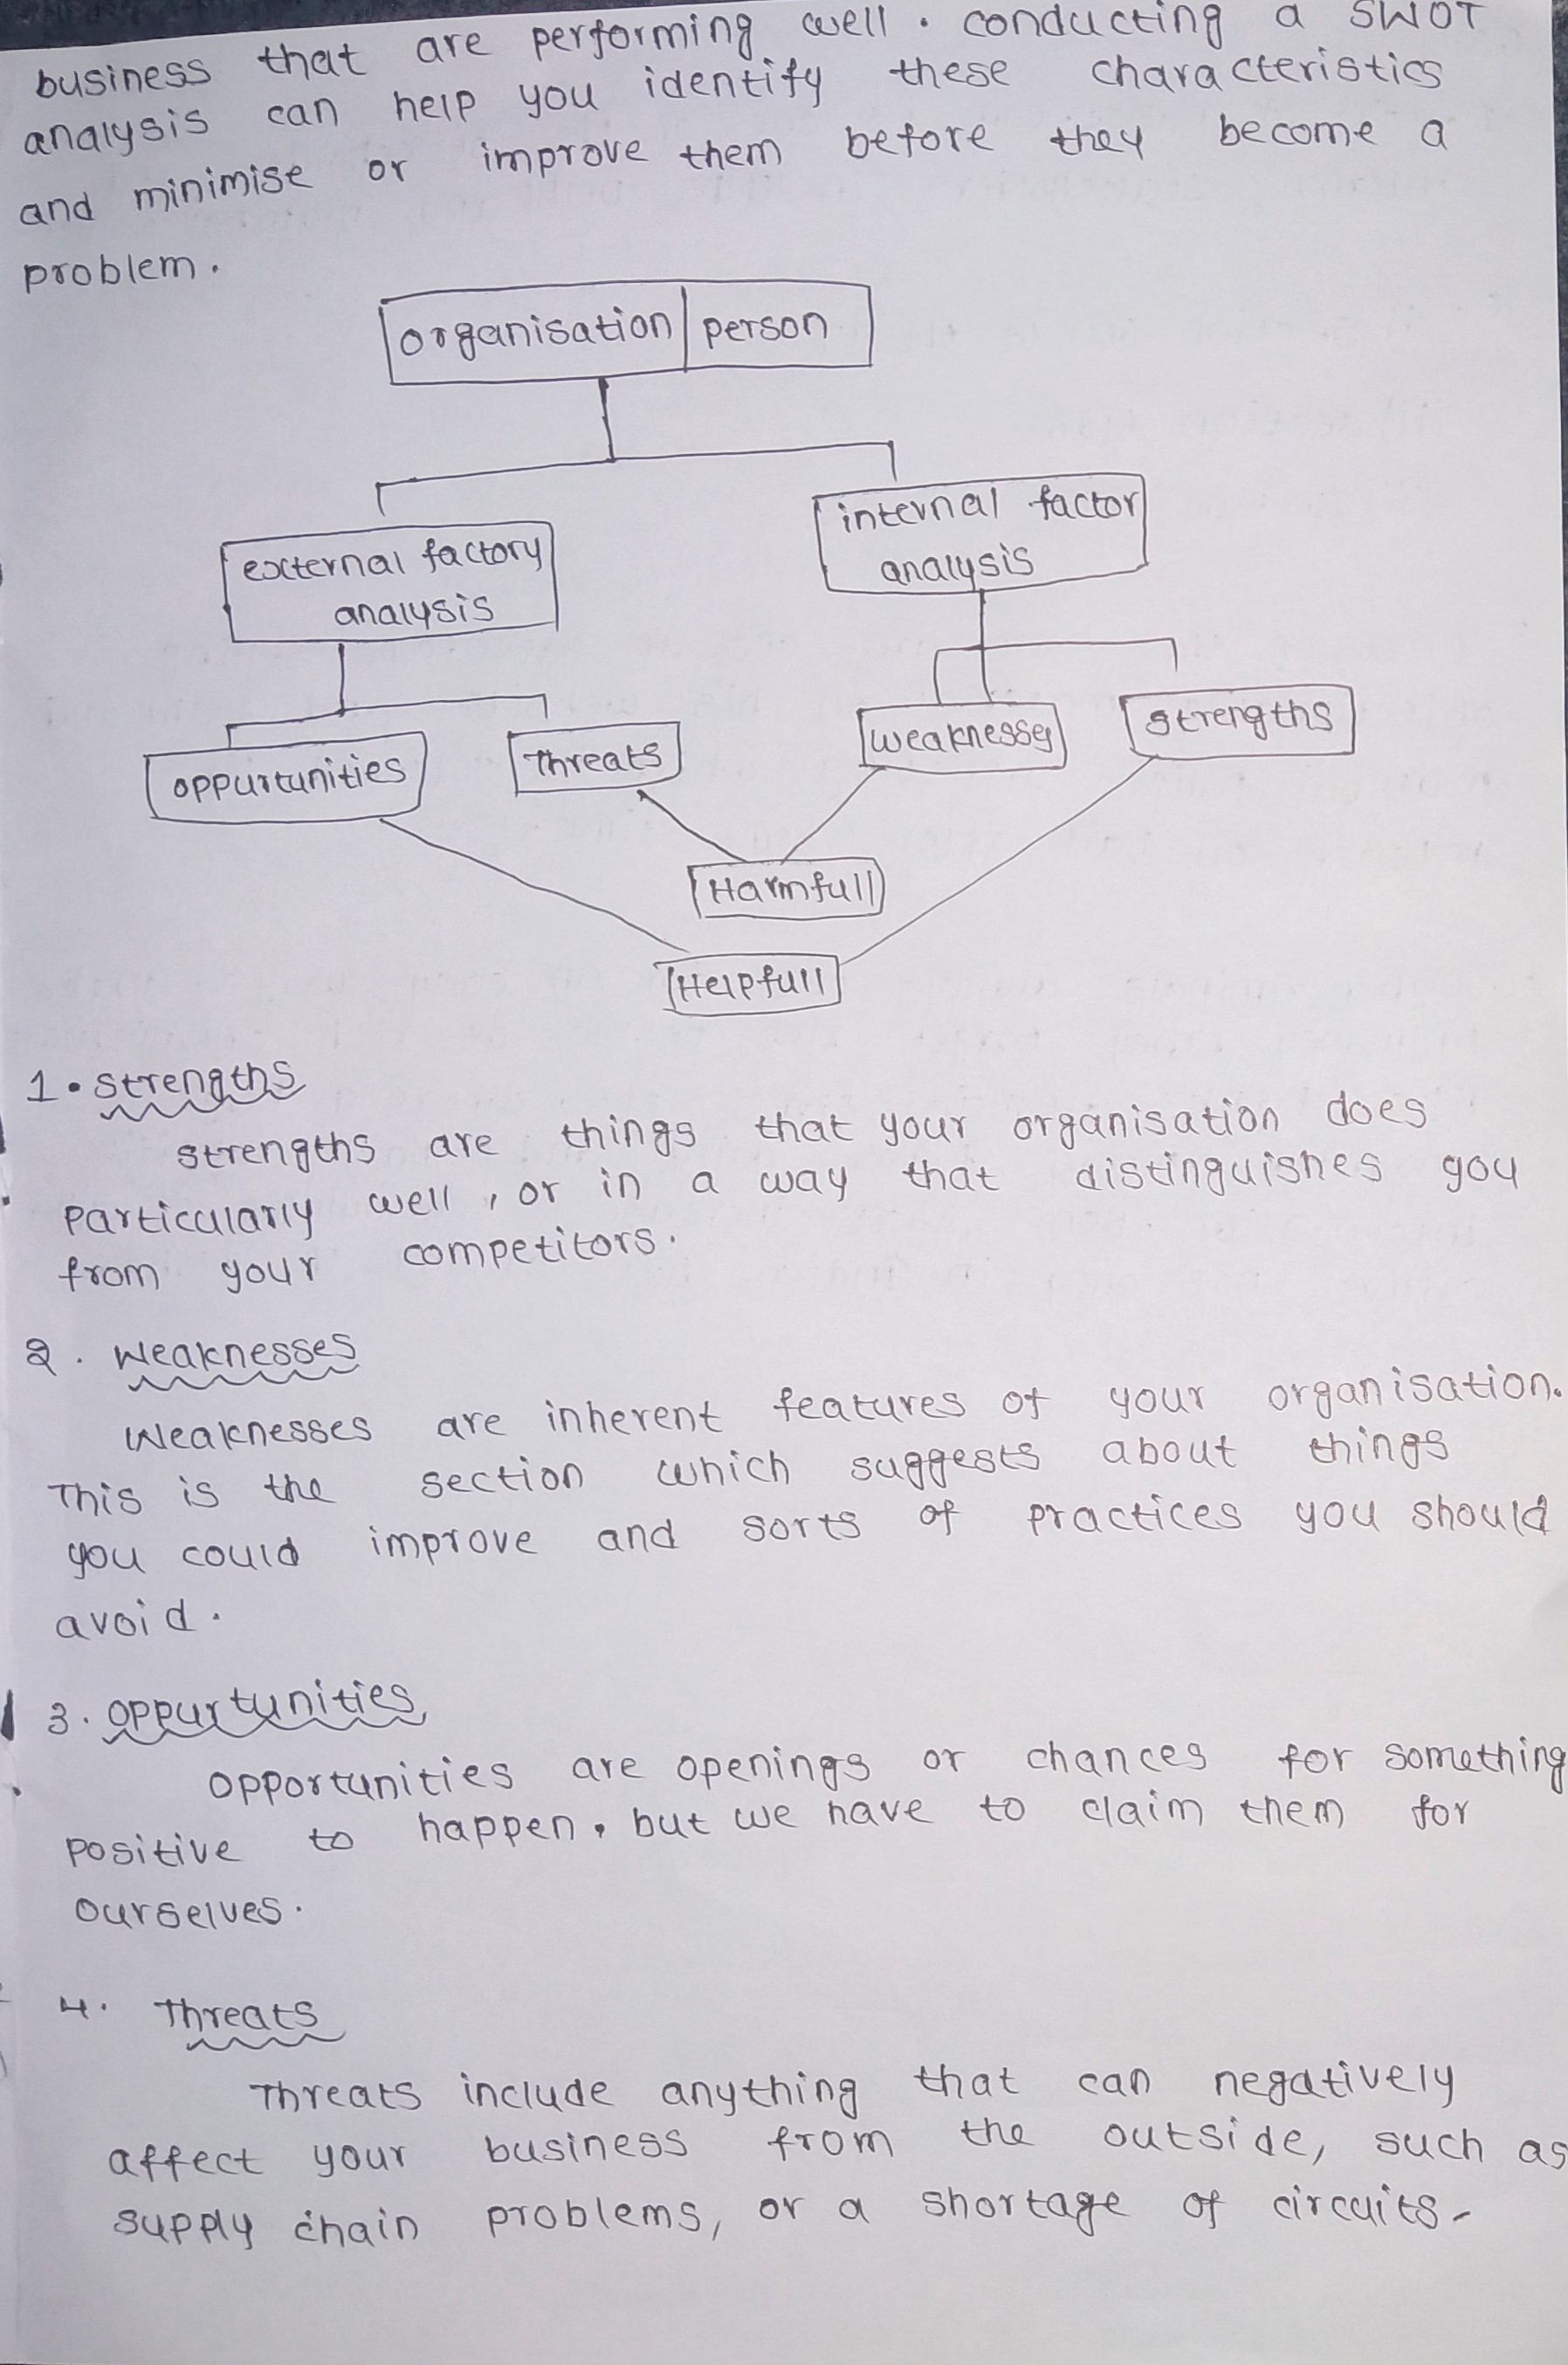 business that are performing well. conducting a SWOT
analysis can help you identify these characteristics
and minimise or improve them before they become a
problem.
organisation person
external factory
analysis
internal factor
analysis
oppurtunities
Threats
weaknesses
strengths
Harmfull
Helpfull
1. strengths
strengths are things that your organisation does
particularly well, or in a way that distinguishes you
from your competitors.
2. Weaknesses
Weaknesses are inherent features of your organisation.
This is the section which suggests about things
you could improve and sorts of practices you should
avoid.
3. oppurtunities
opportunities are openings or chances for something
positive to happen. but we have to claim them for
ourselves.
4. Threats
Threats include anything that can negatively
affect your business from the outside, such as
supply chain problems, or a shortage of circuits-